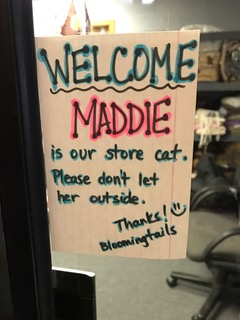 WELCOME
MADDIE
is our store cat.
Please don't let
her outside.
Thanks!
Bloomingtails